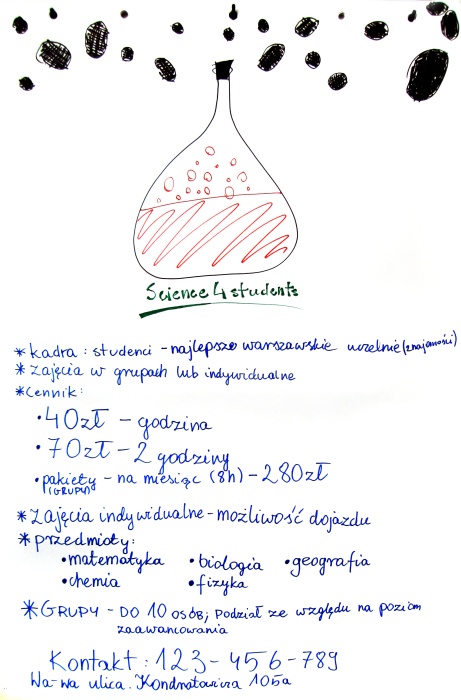 Science 4 students
* kadra : studenci - najlepsze warszawskie uczelnie (znajomości)
* zajęcia w grupach lub indywidualne
* Cennik:
• 40zł - godzina
• 70zł - 2 godziny
• pakiety - na miesiąc (8h) - 280zł
(GRUPY)
* Zajęcia indywidualne - możliwość dojazdu
* przedmioty:
• matematyka • biologia • geografia
• chemia • fizyka
* GRUPY - DO 10 osób; Podział ze względu na poziom
zaawansowania
Kontakt : 123-456-789
Wa-wa ulica. Kondratowicza 105a